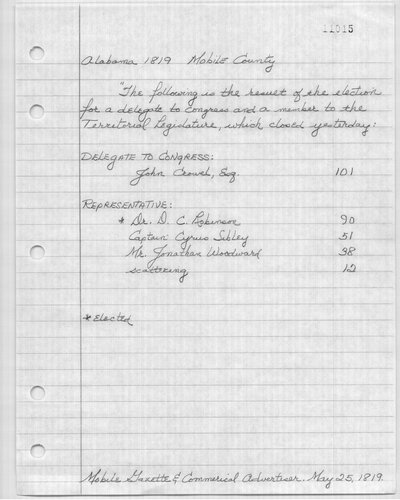 11015
Alabama 1819 Mobile County
"The following is the result of the election
for a delegate to Congress and a member to the
Territorial Legislature, which closed yesterday:
DELEGATE TO CONGRESS:
John Crowell, Esq. 101
REPRESENTATIVE:
* Dr. D. C. Robinson 90
Captain Cyrus Sibley 51
Mr. Jonathan Woodward 38
scattering 12
* Elected
Mobile Gazette & Commerical Advertiser. May 25, 1819.